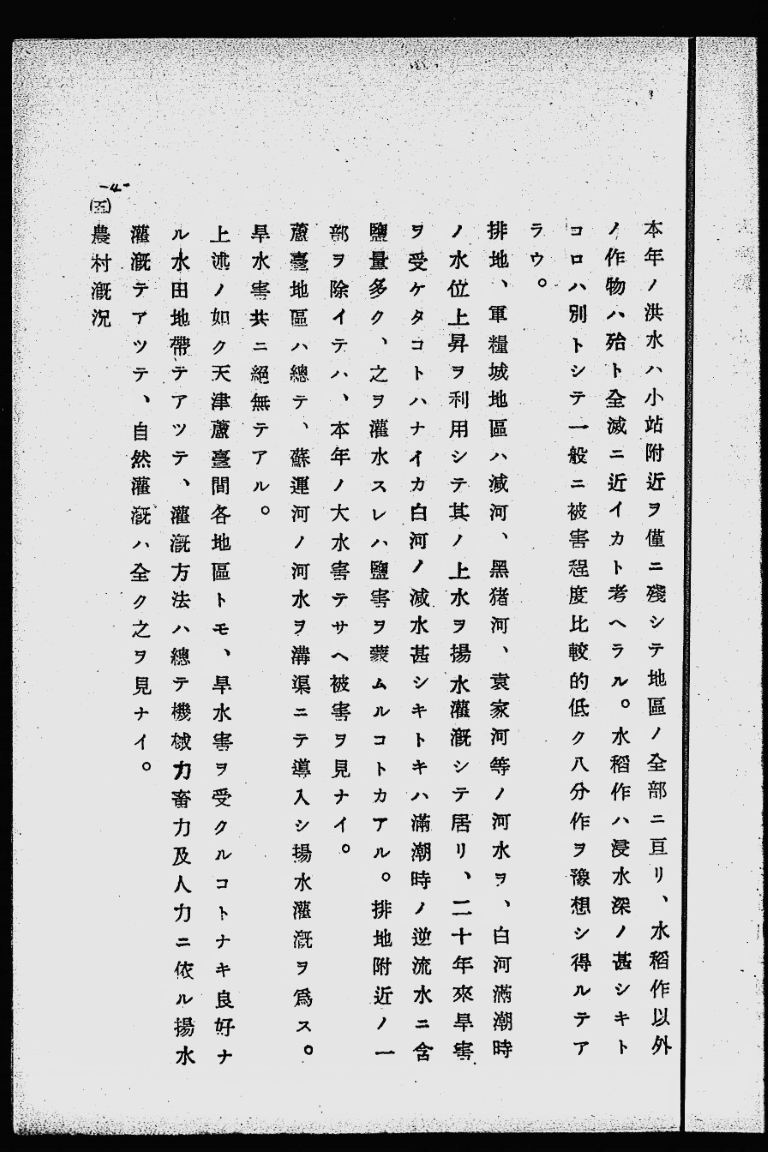 本年ノ洪水ハ小站附近ヲ僅ニ殘シテ地區ノ全部ニ亘リ、水稻作以外
ノ作物ハ殆ト全滅ニ近イカト考ヘラル。水稻作ハ浸水深ノ甚シキト
コロハ別トシテ一般ニ被害程度比較的低ク八分作ヲ豫想シ得ルテア
ラウ。
排地、軍糧城地區ハ減河、黑猪河、袁家河等ノ河水ヲ、白河滿潮時
ノ水位上昇ヲ利用シテ其ノ上水ヲ揚水灌漑シテ居リ、二十年來旱害
ヲ受ケタコトハナイカ白河ノ減水甚シキトキハ滿潮時ノ逆流水ニ含
鹽量多ク、之ヲ灌水スレハ鹽害ヲ蒙ムルコトカアル。排地附近ノ一
部ヲ除イテハ、本年ノ大水害テサヘ被害ヲ見ナイ。
蘆臺地區ハ總テ、蘇運河ノ河水ヲ溝渠ニテ導入シ揚水灌漑ヲ爲ス。
旱水害共ニ絕無テアル。
上述ノ如ク天津蘆臺間各地區トモ、旱水害ヲ受クルコトナキ良好ナ
ル水田地帶テアツテ、灌漑方法ハ總テ機械力畜力及人力ニ依ル揚水
灌漑テアツテ、自然灌漑ハ全ク之ヲ見ナイ。
㈤農村漑況
-4-